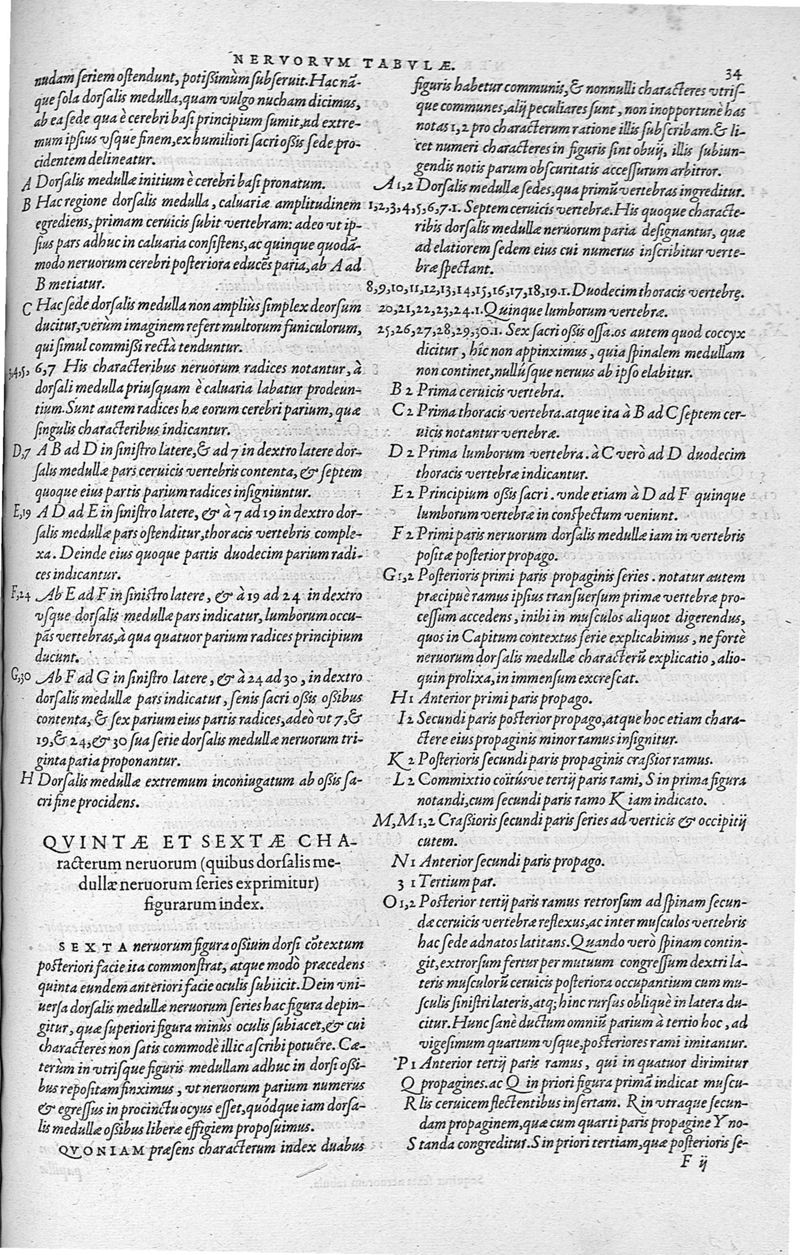 NERVORVM TABVLÆ.
34
nudam seriem ostendunt, potißimùm subseruit. Hac nã-
que sola dorsalis medulla, quam vulgo nucham dicimus,
ab ea sede qua è cerebri basi principium sumit, ad extre-
mum ipsius vsque finem, ex humiliori sacri oßis sede pro-
cidentem delineatur.
A Dorsalis medullæ initium è cerebri basi pronatum.
B Hac regione dorsalis medulla, caluariæ amplitudinem
egrediens, primam ceruicis subit vertebram: adeo vt ip-
sius pars adhuc in caluaria consistens, ac quinque quodã-
modo neruorum cerebri posteriora educẽs paria, ab A ad
B metiatur.
C Hac sede dorsalis medulla non ampliùs simplex deorsum
ducitur, verùm imaginem refert multorum funiculorum,
qui simul commißi rectà tenduntur.
3,4,5, 6,7 His characteribus neruorum radices notantur, à
dorsali medulla priusquam è caluaria labatur prodeun-
tium. Sunt autem radices hæ eorum cerebri parium, quæ
singulis characteribus indicantur.
D,7 A B ad D in sinistro latere, & ad 7 in dextro latere dor-
salis medullæ pars ceruicis vertebris contenta, & septem
quoque eius partis parium radices insigniuntur.
E,19 A D ad E in sinistro latere, & à 7 ad 19 in dextro dor-
salis medullæ pars ostenditur, thoracis vertebris comple-
xa. Deinde eius quoque partis duodecim parium radi-
ces indicantur.
F,24 Ab E ad F in sinistro latere, & à 19 ad 24 in dextro
vsque dorsalis medullæ pars indicatur, lumborum occu-
pãs vertebras, à qua quatuor parium radices principium
ducunt.
G,30 Ab F ad G in sinistro latere, & à 24 ad 30, in dextro
dorsalis medullæ pars indicatur, senis sacri oßis oßibus
contenta, & sex parium eius partis radices, adeò vt 7, &
19, & 24, & 30 sua serie dorsalis medullæ neruorum tri-
ginta paria proponantur.
H Dorsalis medullæ extremum inconiugatum ab oßis sa-
cri fine procidens.
QVINTÆ ET SEXTÆ CHA-
racterum neruorum (quibus dorsalis me-
dullæ neruorum series exprimitur)
figurarum index.
SEXTA neruorum figura oßium dorsi cõtextum
posteriori facie ita commonstrat, atque modò præcedens
quinta eundem anteriori facie oculis subiicit. Dein vni-
uersa dorsalis medullæ neruorum series hac figura depin-
gitur, quæ superiori figura minùs oculis subiacet, & cui
characteres non satis commodè illic ascribi potuêre. Cæ-
terùm in vtrisque figuris medullam adhuc in dorsi oßi-
bus repositam finximus, vt neruorum parium numerus
& egressus in procinctu ocyus esset, quódque iam dorsa-
lis medullæ oßibus liberæ effigiem proposuimus.
QVONIAM præsens characterum index duabus
figuris habetur communis, & nonnulli characteres vtris-
que communes, alij peculiares sunt, non inopportunè has
notas 1, 2 pro characterum ratione illis subscribam. & li-
cet numeri characteres in figuris sint obuij, illis subiun-
gendis notis parum obscuritatis accessurum arbitror.
A 1,2 Dorsalis medullæ sedes, qua primũ vertebras ingreditur.
1,2,3,4,5,6,7.1. Septem ceruicis vertebræ. His quoque characte-
ribus dorsalis medullæ neruorum paria designantur, quæ
ad elatiorem sedem eius cui numerus inscribitur verte-
bræ spectant.
8,9,10,11,12,13,14,15,16,17,18,19.1. Duodecim thoracis vertebrę.
20,21,22,23,24.1. Quinque lumborum vertebræ.
25,26,27,28,29,30.1. Sex sacri oßis ossa. os autem quod coccyx
dicitur, hîc non appinximus, quia spinalem medullam
non continet, nullúsque neruus ab ipso elabitur.
B 2 Prima ceruicis vertebra.
C 2 Prima thoracis vertebra. atque ita à B ad C septem cer-
uicis notantur vertebræ.
D 2 Prima lumborum vertebra. à C verò ad D duodecim
thoracis vertebræ indicantur.
E 2 Principium oßis sacri. vnde etiam à D ad F quinque
lumborum vertebræ in conspectum veniunt.
F 2 Primi paris neruorum dorsalis medullæ iam in vertebris
positæ posterior propago.
G 1,2 Posterioris primi paris propaginis series. notatur autem
præcipuè ramus ipsius transuersum primæ vertebræ pro-
cessum accedens, inibi in musculos aliquot digerendus,
quos in Capitum contextus serie explicabimus, ne fortè
neruorum dorsalis medullæ characterũ explicatio, alio-
quin prolixa, in immensum excrescat.
H 1 Anterior primi paris propago.
I 2 Secundi paris posterior propago, atque hoc etiam chara-
ctere eius propaginis minor ramus insignitur.
K 2 Posterioris secundi paris propaginis craßior ramus.
L 2 Commixtio coitúsve tertij paris rami, S in prima figura
notandi, cum secundi paris ramo K iam indicato.
M, M 1,2 Craßioris secundi paris series ad verticis & occipitij
cutem.
N 1 Anterior secundi paris propago.
3 1 Tertium par.
O 1,2 Posterior tertij paris ramus retrorsum ad spinam secun-
dæ ceruicis vertebræ reflexus, ac inter musculos vertebris
hac sede adnatos latitans. Quando verò spinam contin-
git, extrorsum fertur per mutuum congressum dextri la-
teris musculorũ ceruicis posteriora occupantium cum mu-
sculis sinistri lateris, atq; hinc rursus obliquè in latera du-
citur. Hunc sanè ductum omniũ parium à tertio hoc, ad
vigesimum quartum vsque, posteriores rami imitantur.
P 1 Anterior tertij paris ramus, qui in quatuor dirimitur
Q propagines. ac Q in priori figura primã indicat muscu-
R lis ceruicem flectentibus insertam. R in vtraque secun-
dam propaginem, quæ cum quarti paris propagine Y no-
S tanda congreditur. S in priori tertiam, quæ posterioris se-
F ij